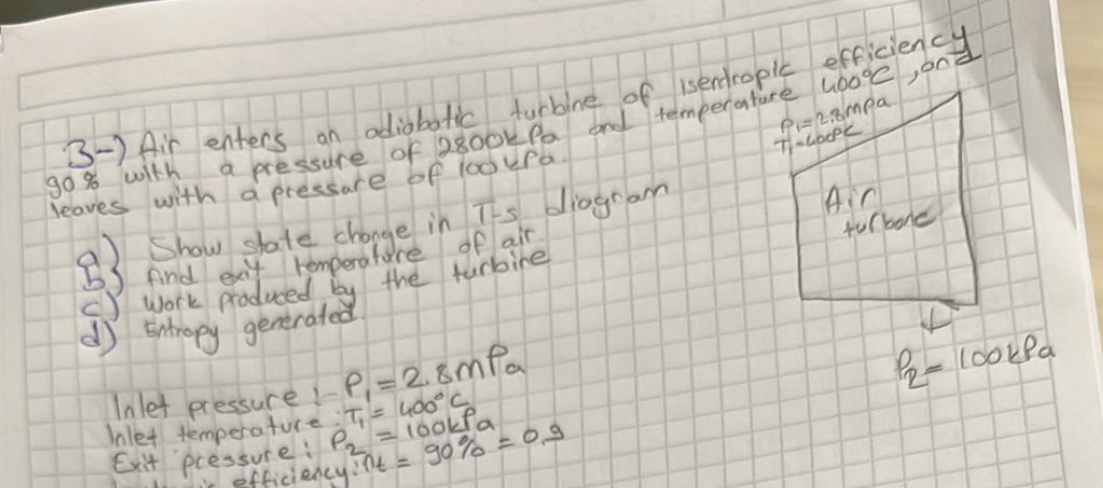 3-) Air enters an adiabatic turbine of isentropic efficiency
90% with a pressure of 2800kPa and temperature 400°C, and
leaves with a pressure of 100kPa.
a) Show state change in T-s diagram
b) find exit temperature of air.
c) Work produced by the turbine
d) Entropy generated.
P₁=2.8mPa
T₁=400°C
Air
turbone
P₂= 100kPa
Inlet pressure : P₁ = 2.8mPa
Inlet temperature : T₁ = 400°C
Exit pressure : P₂ = 100kPa
efficiency : nt = 90% = 0.9